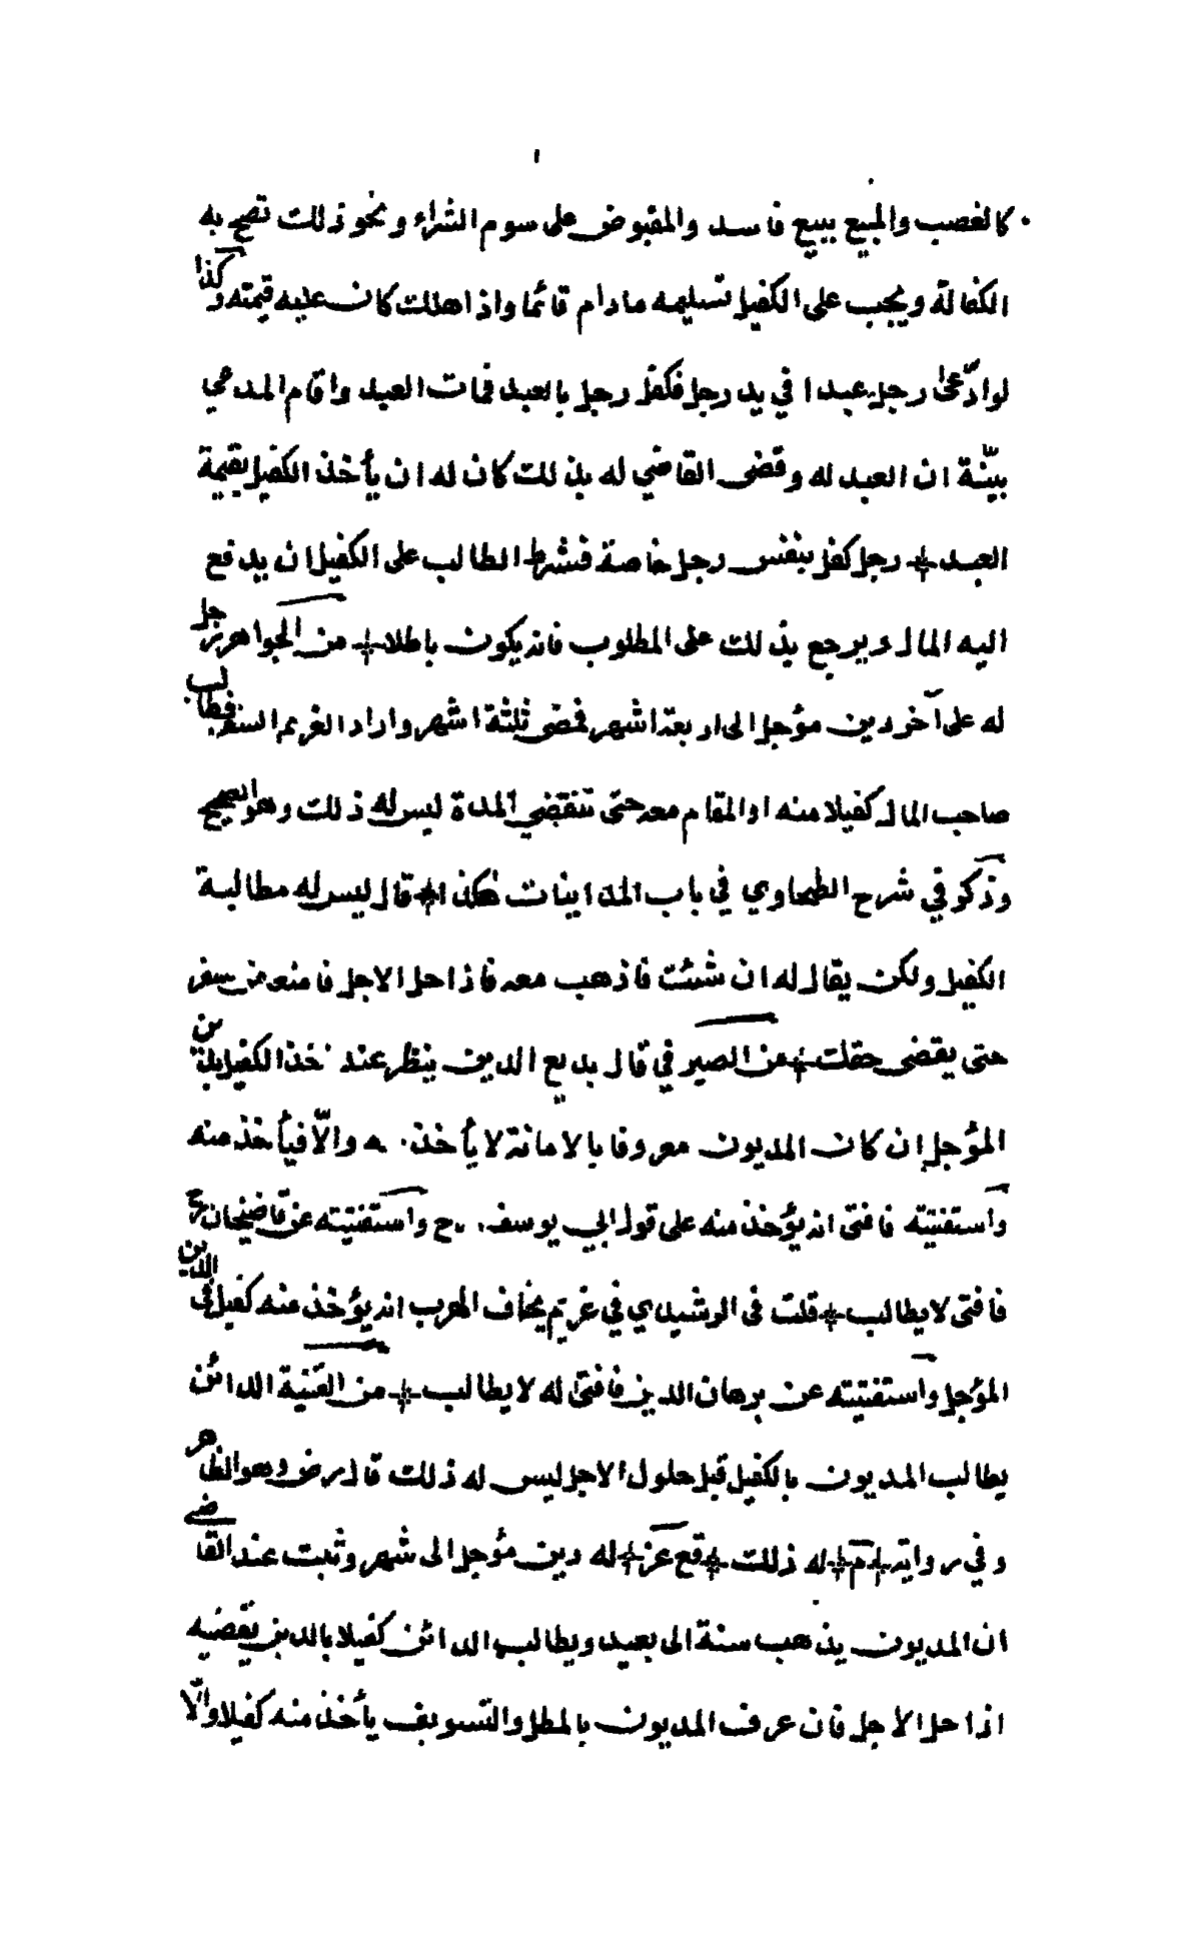 كالغصب والمبيع ببيع فاسد والمقبوض على سوم الشراء ونحو ذلك تصح به
الكفالة ويجب على الكفيل تسليمه مادام قائما واذا هلك كان عليه قيمته وكذا
لو ادّعى رجل عبدا في يد رجل فكفل رجل بالعبد فمات العبد واقام المدعي
بيّنة ان العبد له وقضى القاضي له بذلك كان له ان يأخذ الكفيل بقيمة
العبد رجل كفل بنفس رجل خاصة فشرط الطالب على الكفيل ان يدفع
اليه المال ويرجع بذلك على المطلوب فانه يكون باطلا من الجواهر رجل
له على آخر دين مؤجل الى اربعة اشهر فمضى ثلثة اشهر واراد الغريم السفر فطالب
صاحب المال كفيلا منه او المقام معه حتى تنقضي المدة ليس له ذلك وهو الصحيح
وذكر في شرح الطحاوي في باب المداينات هكذا قال ليس له مطالبة
الكفيل ولكن يقال له ان شئت فاذهب معه فاذا حل الاجل فامنعه من سفر
حتى يقضى حقك من الصيرفي قال بديع الدين ينظر عند اخذ الكفيل بدين
المؤجل ان كان المديون معروفا بالامانة لا يأخذ والّا فيأخذ منه
واستفتيته فافتى انه يؤخذ منه على قول ابي يوسف رح واستفتيته عن قاضيخان رح
فافتى لا يطالب قلت فى الرشيدي في غريم يخاف الهرب انه يؤخذ منه كفيل فى الدين
المؤجل واستفتيته عن برهان الدين فافتى له لا يطالب من القنية الدائن
يطالب المديون بالكفيل قبل حلول الاجل ليس له ذلك قال رض وهو الظاهر
وفي رواية م له ذلك قع عز له دين مؤجل الى شهر وثبت عند القاضي
ان المديون يذهب سنة الى بعيد ويطالب الدائن كفيلا بالدين يقضيه
اذا حل الاجل فان عرف المديون بالمطل والتسويف يأخذ منه كفيلا والّا